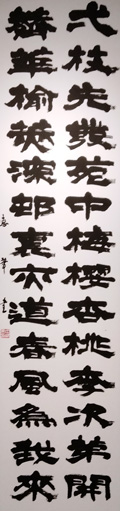 弌枝先發苑中梅櫻杏桃李次第開
薺華榆莢深邨裏亦道春風為我來